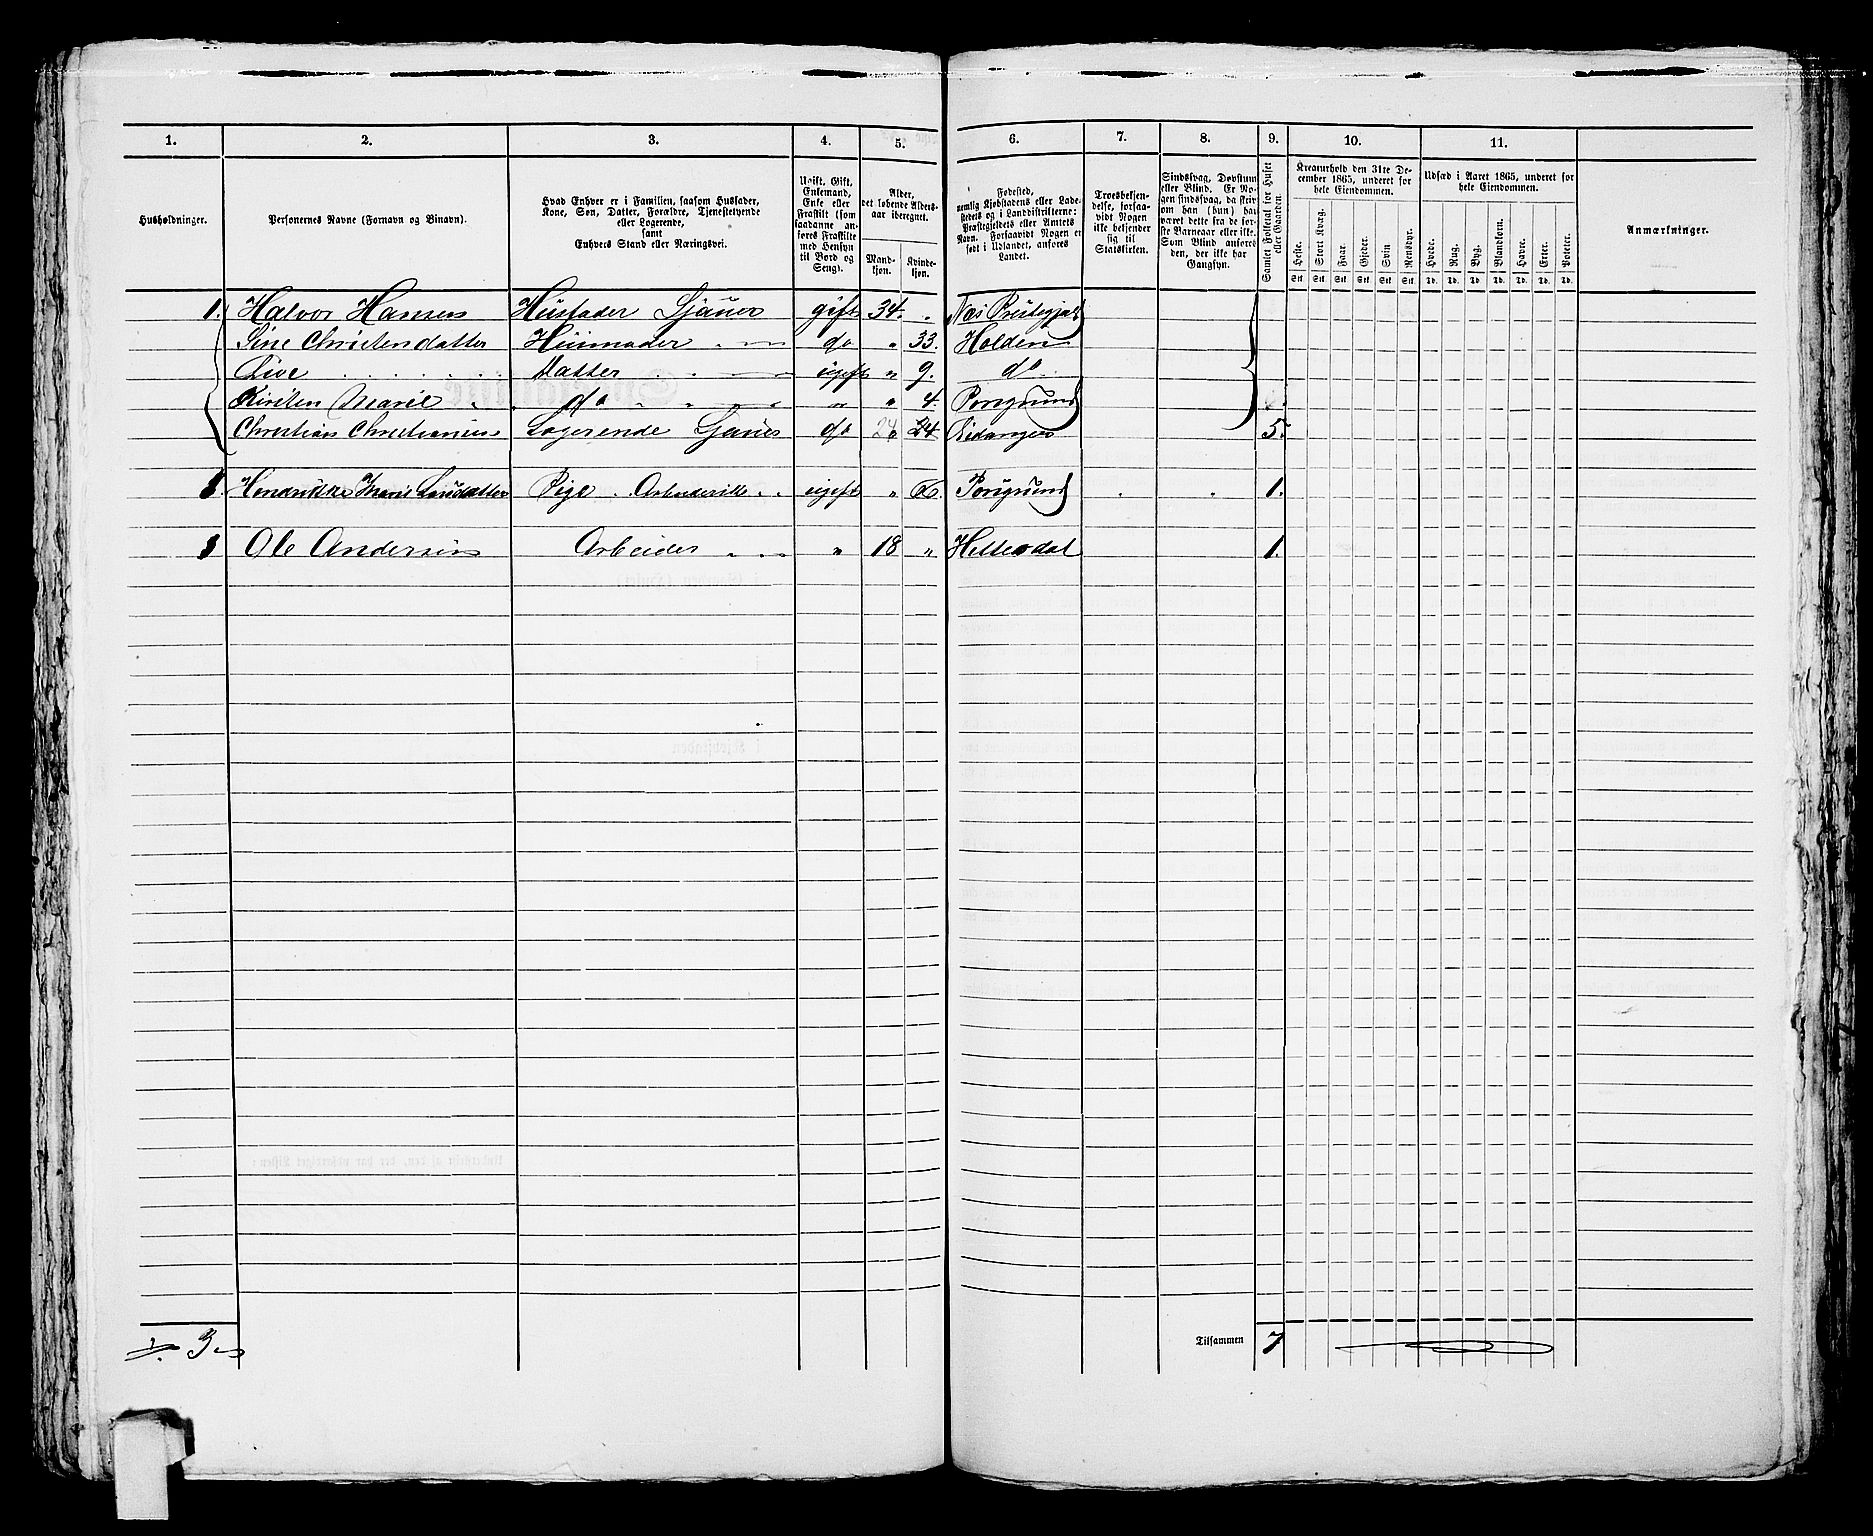 1. 2. 3. 4. 5. 6. 7. 8. 9. 10. 11.
Husholdninger.
Personernes Navne (Fornavn og Binavn).
Hvad Enhver er i Familien, saasom Husfader,
Kone, Søn, Datter, Forældre, Tjenestetyende
eller Logerende,
samt
Enhvers Stand eller Næringsvei.
Ugift, Gift,
Enkemand,
Enke eller
Fraskilt (som
saadanne an-
føres Fraskilte
med Hensyn
til Bord og
Seng).
Alder,
det løbende Alders-
aar iberegnet.
Mand-
kjøn.
Kvinde-
kjøn.
Fødested,
nemlig Kjøbstadens eller Lade-
stedets og i Landdistrikterne:
Præstegjeldets eller Amtets
Navn. Forsaavidt Nogen er
født i Udlandet, anføres
Landet.
Troesbekjen-
delse, forsaa-
vidt Nogen
ikke bekjender
sig til
Statskirken.
Sindssvag, Døvstum
eller Blind. Er No-
gen sindssvag, da skriv
om han (hun) har
været dette fra de før-
ste Barneaar eller ikke.
Som Blind anføres
den, der ikke har
Gangsyn.
Samlet Folketal for Huset
eller Gaarden.
Kreaturhold den 31te De-
cember 1865, underet for
hele Eiendommen.
Heste. Stort Kvæg. Faar. Gjeder. Svin Rensdyr.
Stk. Stk. Stk. Stk. Stk. Stk.
Udsæd i Aaret 1865, underet for
hele Eiendommen.
Hvede. Rug. Byg. Blandkorn. Havre. Erter. Poteter.
Td. Td. Td. Td. Td. Td. Td.
Anmærkninger.
1. Halvor Hansen Husfader Sjauer gift 34. " Næs Prestegjæld
Sine Christensdatter Huusmoder " do " 33. Holden
Live Datter ugift " 9. do
Kirsten Marie do " " 4. Porsgrund
Christian Christiansen Logerende Sjauer do 24 24 Eidanger 5.
1. Hendrikke Marie Pige Arbeiderske ugift " Porsgrund 1.
1 Ole Andersen Arbeider " 18 " Hitterdal 1.
3
Tilsammen 7